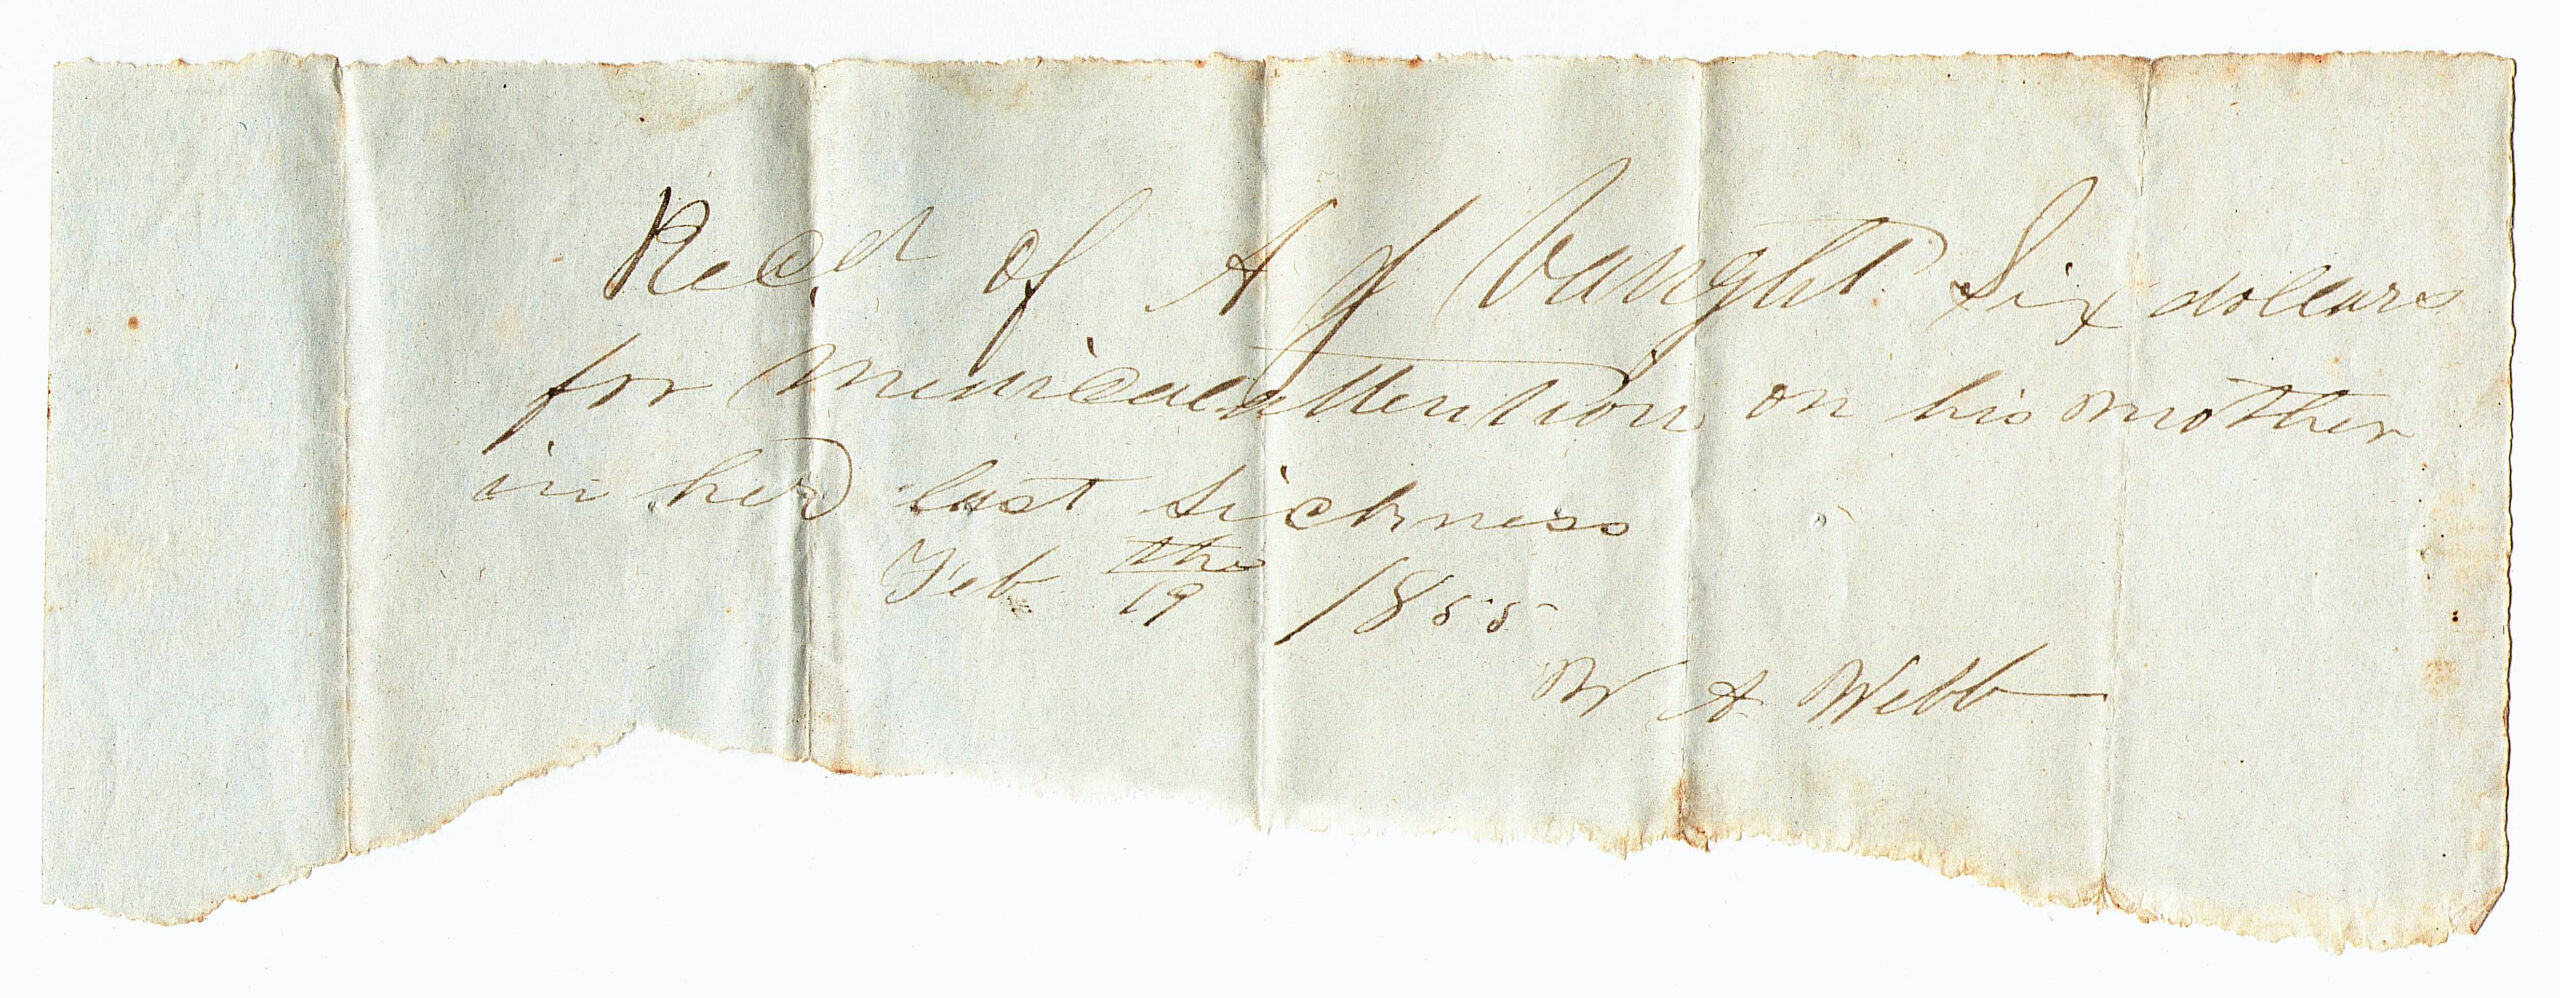 Recd of A J Vaught Six dollars
for medical attention on his mother
in her last sickness
Feb the 19 1855
W A Webb